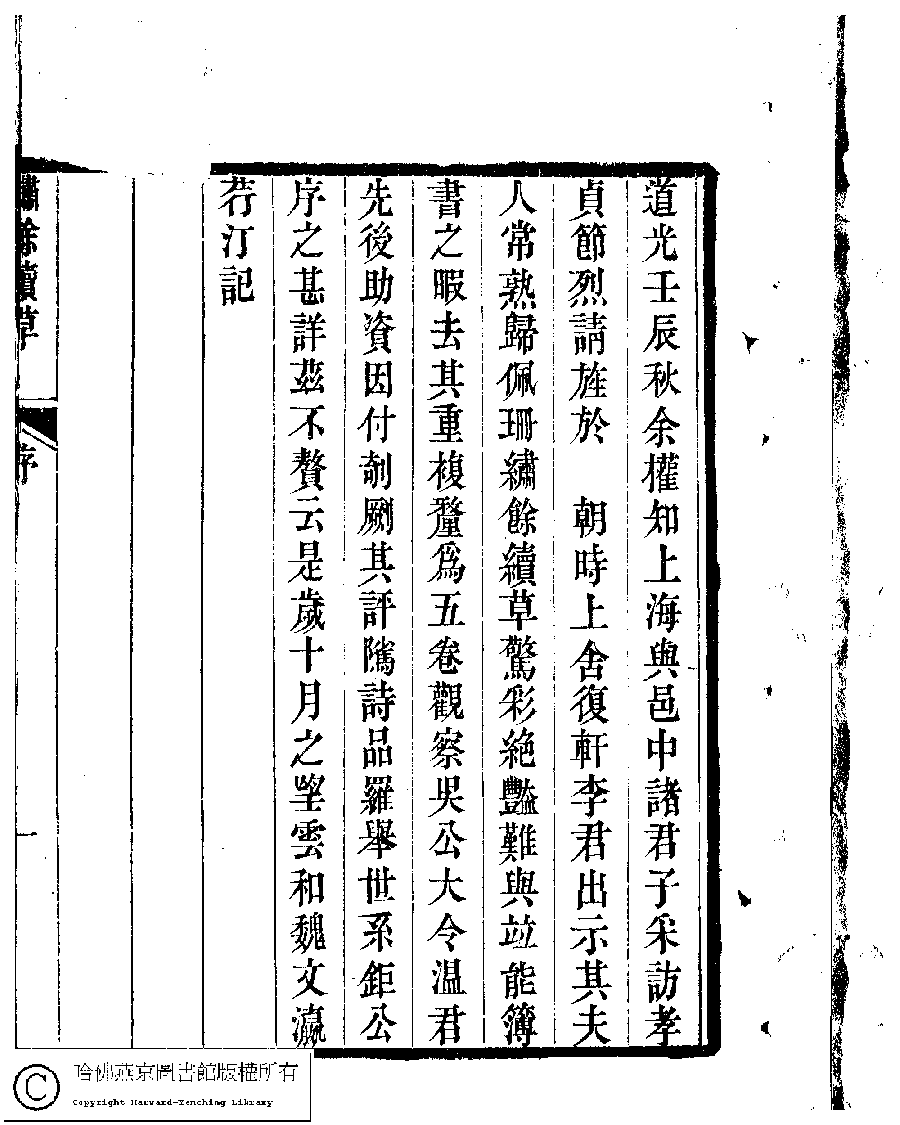 道光壬辰秋余權知上海與邑中諸君子采訪孝
貞節烈請旌於　朝時上舍復軒李君出示其夫
人常熟歸佩珊繡餘續草驚彩絕豔難與竝能簿
書之暇去其重複釐爲五卷觀察吳公大令溫君
先後助資因付剞劂其評隲詩品羅舉世系鉅公
序之甚詳茲不贅云是歲十月之望雲和魏文瀛
荇汀記
繡餘續草
序
一
哈佛燕京圖書館版權所有
Copyright Harvard-Yenching Library